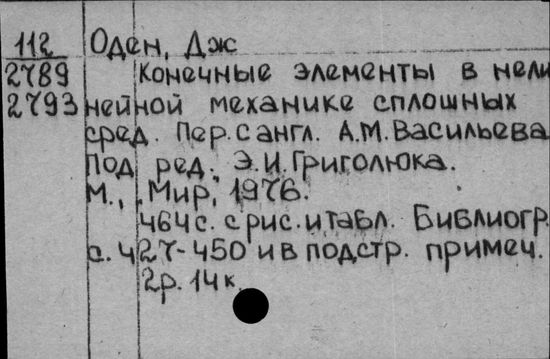 112 Оден, Дж
2789 Конечные элементы в нели
2793 нейной механике сплошных
сред. Пер. с англ. А.М. Васильева
Под ред. Э.И. Григолюка.
М., „Мир", 1976.
464 с. с рис. и табл. Библиогр.
с. 427-450 и в подстр. примеч.
2р. 14 к.